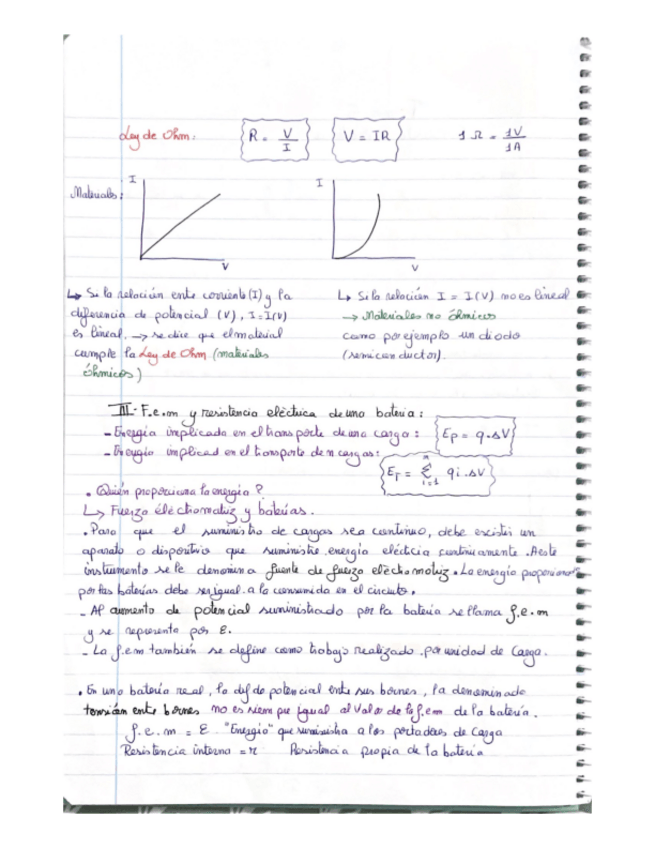 Ley de Ohm: R = V/I V = IR 1 Ω = 1V/1A
Materiales: I V I V
↳ Si la relación entre corriente (I) y la
diferencia de potencial (V), I=I(V)
es lineal → se dice que el material
cumple la Ley de Ohm (materiales
óhmicos)
↳ Si la relación I = I(V) no es lineal
→ Materiales no óhmicos
como por ejemplo un diodo
(semiconductor).
III- F.e.m y resistencia eléctrica de una batería:
- Energía implicada en el transporte de una carga: Ep = q.ΔV
- Energía implicad en el transporte de n cargas: ET = Σ n i=1 qi.ΔV
. Quién proporciona la energía?
↳ Fuerza eléctromotriz y baterías.
. Para que el suministro de cargas sea continuo, debe escistir un
aparato o dispositivo que suministre energía eléctcia continuamente. A este
instrumento se le denomina fuente de fuerza eléctromotriz. La energía proporionada
por las baterías debe ser igual a la consumida en el circuito.
- Al aumento de potencial suministrado por la batería se llama f.e.m
y se representa por ε.
- La f.e.m también se define como trabajo realizado por unidad de Carga.
. En una batería real, la dif de potencial entre sus bornes, la denominada
tensión entre bornes no es siempre igual al valor de la f.em de la batería.
f.e.m = ε "Energía" que suministra a los portadores de Carga
Resistencia interna = r Resistencia propia de la batería